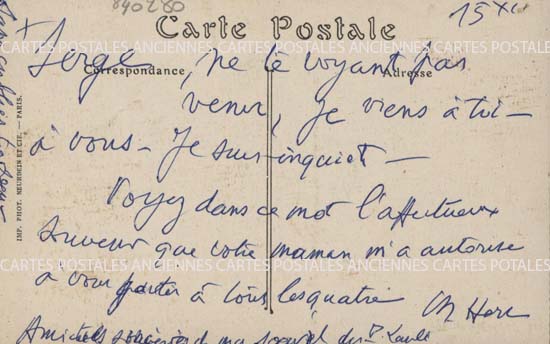 840280
Carte Postale
15 XI
Correspondance
Adresse
Serge, ne te voyant pas
venir, je viens à toi -
à vous - Je suis inquiet -
Voyez dans ce mot l'affectueux
souvenir que votre maman m'a autorisé
à vous porter à tous les quatre
IMP. PHOT. NEURDEIN ET CIE. - PARIS.
CARTES POSTALES ANCIENNES CARTES POSTALES ANCIENNES
ANCIENNES CARTES POSTALES ANCIENNES CARTES POSTALES